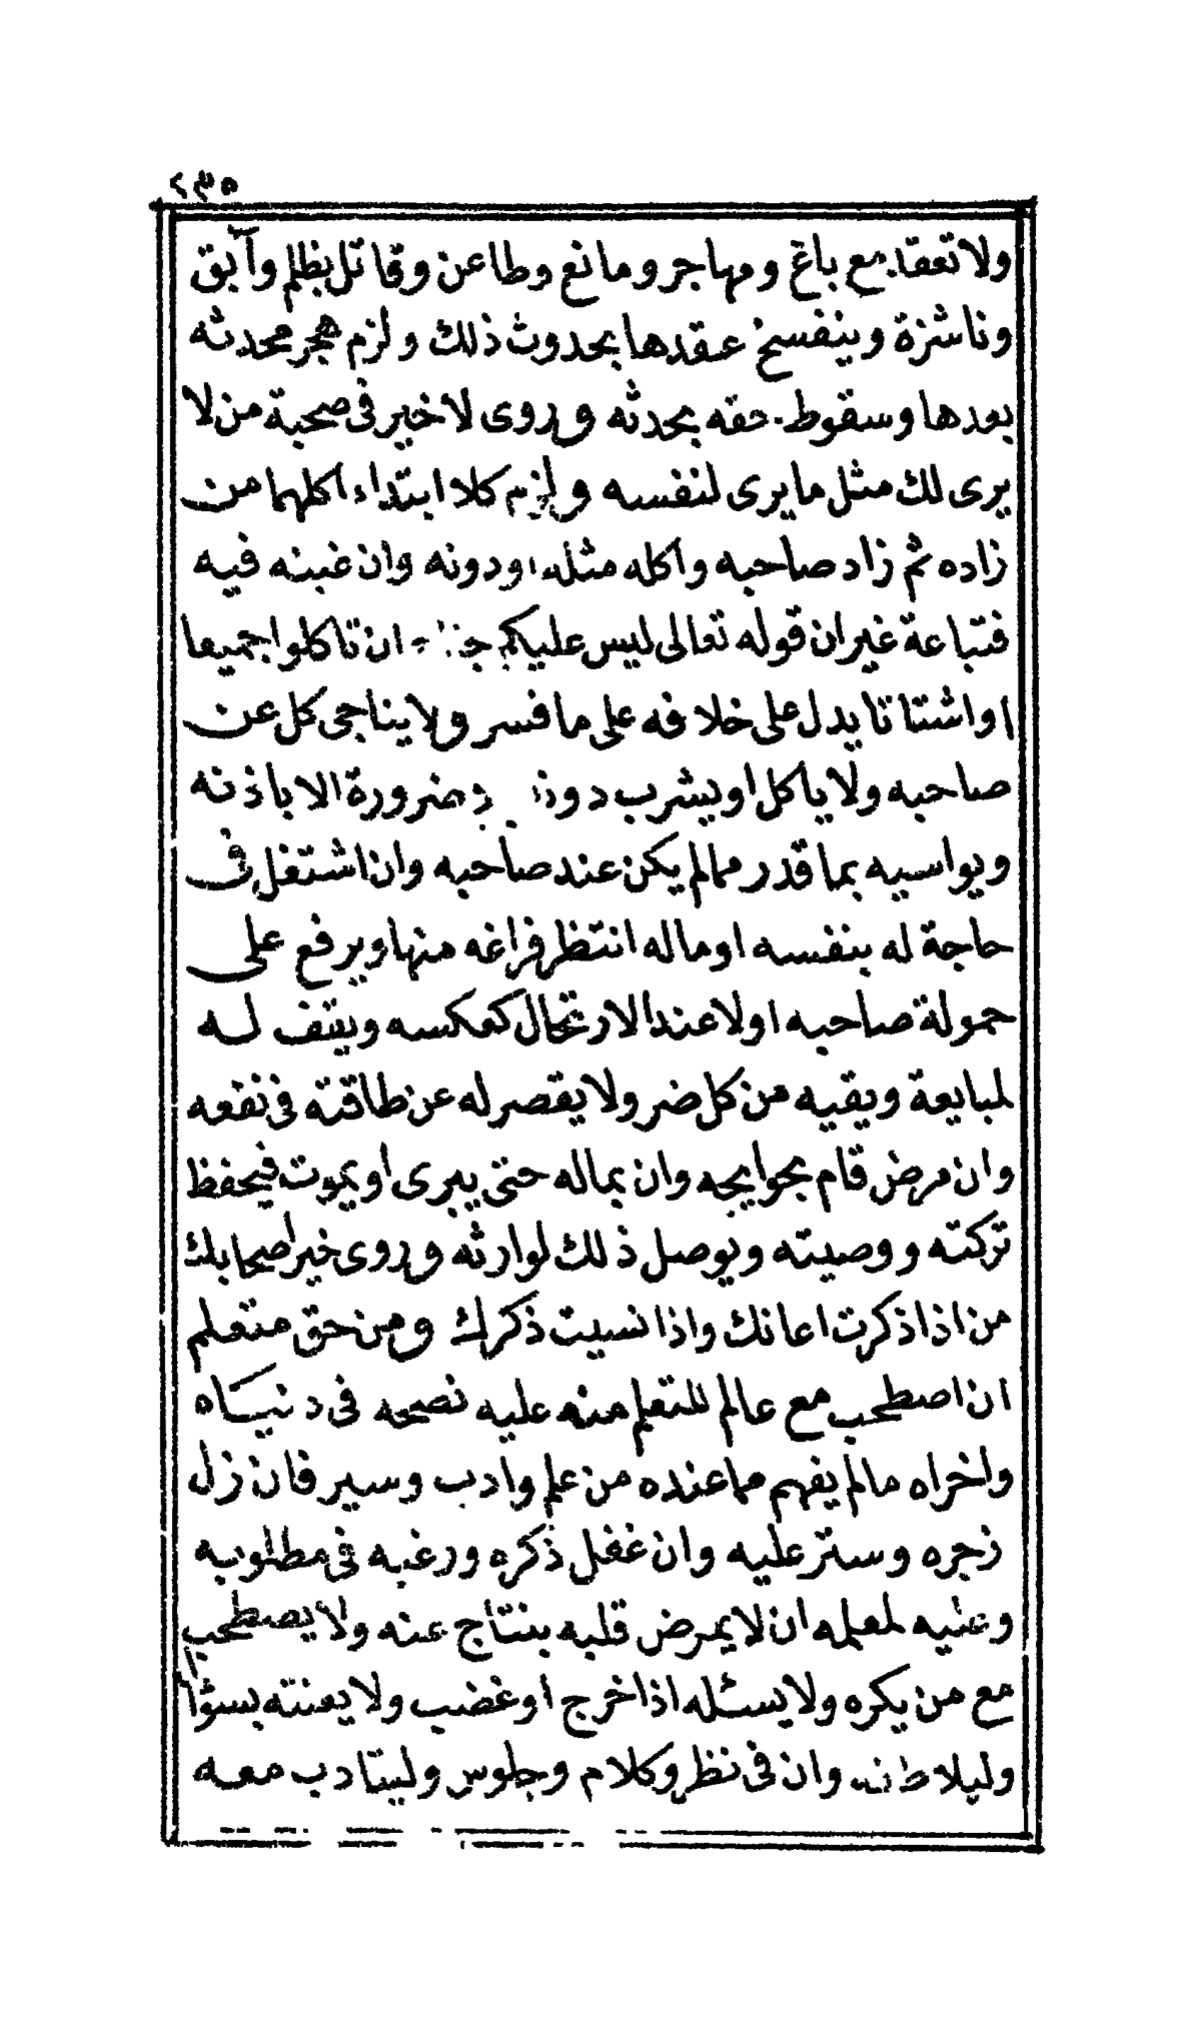 ٢٣٥
ولا تعقد مع باغ ومهاجر ومانع وطاعن وقاتل بظلم وآبق
وناشزة وينفسخ عقدها بحدوث ذلك ولزم هجر محدثه
بعدها وسقوط حقه بحدثه وروى لا خير فى صحبة من لا
يرى لك مثل ما يرى لنفسه ولزم كلا ابتداء اكلهما من
زاده ثم زاد صاحبه واكله مثله اودونه وان غبنه فيه
فتباعة غير ان قوله تعالى ليس عليكم جناح ان تاكلوا جميعا
او اشتاتا يدل على خلافه على ما فسر ولا يناجى كل عن
صاحبه ولا ياكل او يشرب دونه ضرورة الا باذنه
ويواسيه بما قدر مما لم يكن عند صاحبه وان اشتغل فى
حاجة له بنفسه او ماله انتظر فراغه منها ويرفع على
حمولة صاحبه اولا عند الارتحال كعكسه ويقف له
لمبايعة ويقيه من كل ضر ولا يقصر له عن طاقته فى نفعه
وان مرض قام بحوايجه وان بماله حتى يبرى او يموت فيحفظ
تركته ووصيته ويوصل ذلك لوارثه وروى خير اصحابك
من اذا ذكرت اعانك واذا نسيت ذكرك ومن حق متعلم
ان اصطحب مع عالم للتعلم منه عليه نصحه فى دنياه
واخراه ما لم يفهم مما عنده من علم وادب وسير فان زل
زجره وستر عليه وان غفل ذكره ورغبه فى مطلوبه
وعليه لمعلمه ان لا يمرض قلبه بنتاج عنه ولا يصطحب
مع من يكره ولا يسئله اذا خرج او غضب ولا يعنته بسؤال
وليلاطفه وان فى نظر وكلام وجلوس وليتادب معه